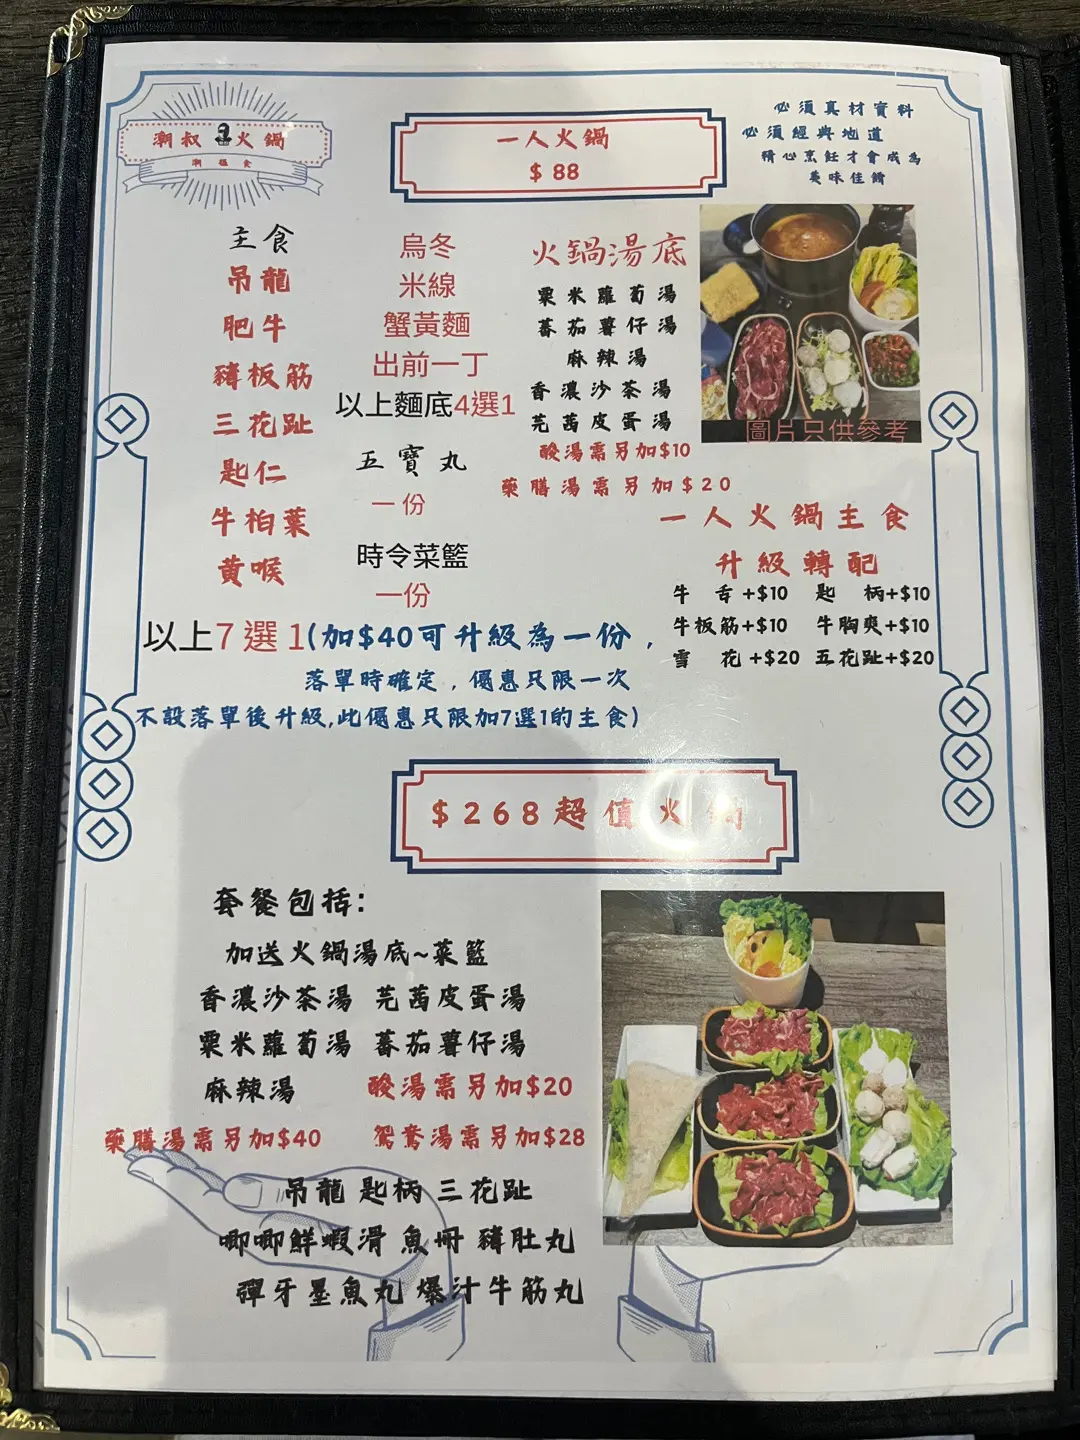 潮叔 火鍋
一人火鍋
$ 88
必須真材實料
必須經典地道
精心烹飪才會成為
美味佳餚
主食
吊龍
肥牛
豬板筋
三花趾
匙仁
牛柏葉
黃喉
烏冬
米線
蟹黃麵
出前一丁
以上麵底4選1
五寶丸
一份
時令菜籃
一份
火鍋湯底
粟米蘿蔔湯
蕃茄薯仔湯
麻辣湯
香濃沙茶湯
芫茜皮蛋湯
酸湯需另加$10
藥膳湯需另加$20
圖片只供參考
一人火鍋主食
升級轉配
牛 舌+$10 匙 柄+$10
牛板筋+$10 牛胸爽+$10
雪 花+$20 五花趾+$20
以上7選1(加$40可升級為一份，
落單時確定，優惠只限一次
不設落單後升級,此優惠只限加7選1的主食)
$268超值火鍋
套餐包括:
加送火鍋湯底~菜籃
香濃沙茶湯 芫茜皮蛋湯
粟米蘿蔔湯 蕃茄薯仔湯
麻辣湯 酸湯需另加$20
藥膳湯需另加$40 鴛鴦湯需另加$28
吊龍 匙柄 三花趾
唧唧鮮蝦滑 魚冊 豬肚丸
彈牙墨魚丸 爆汁牛筋丸